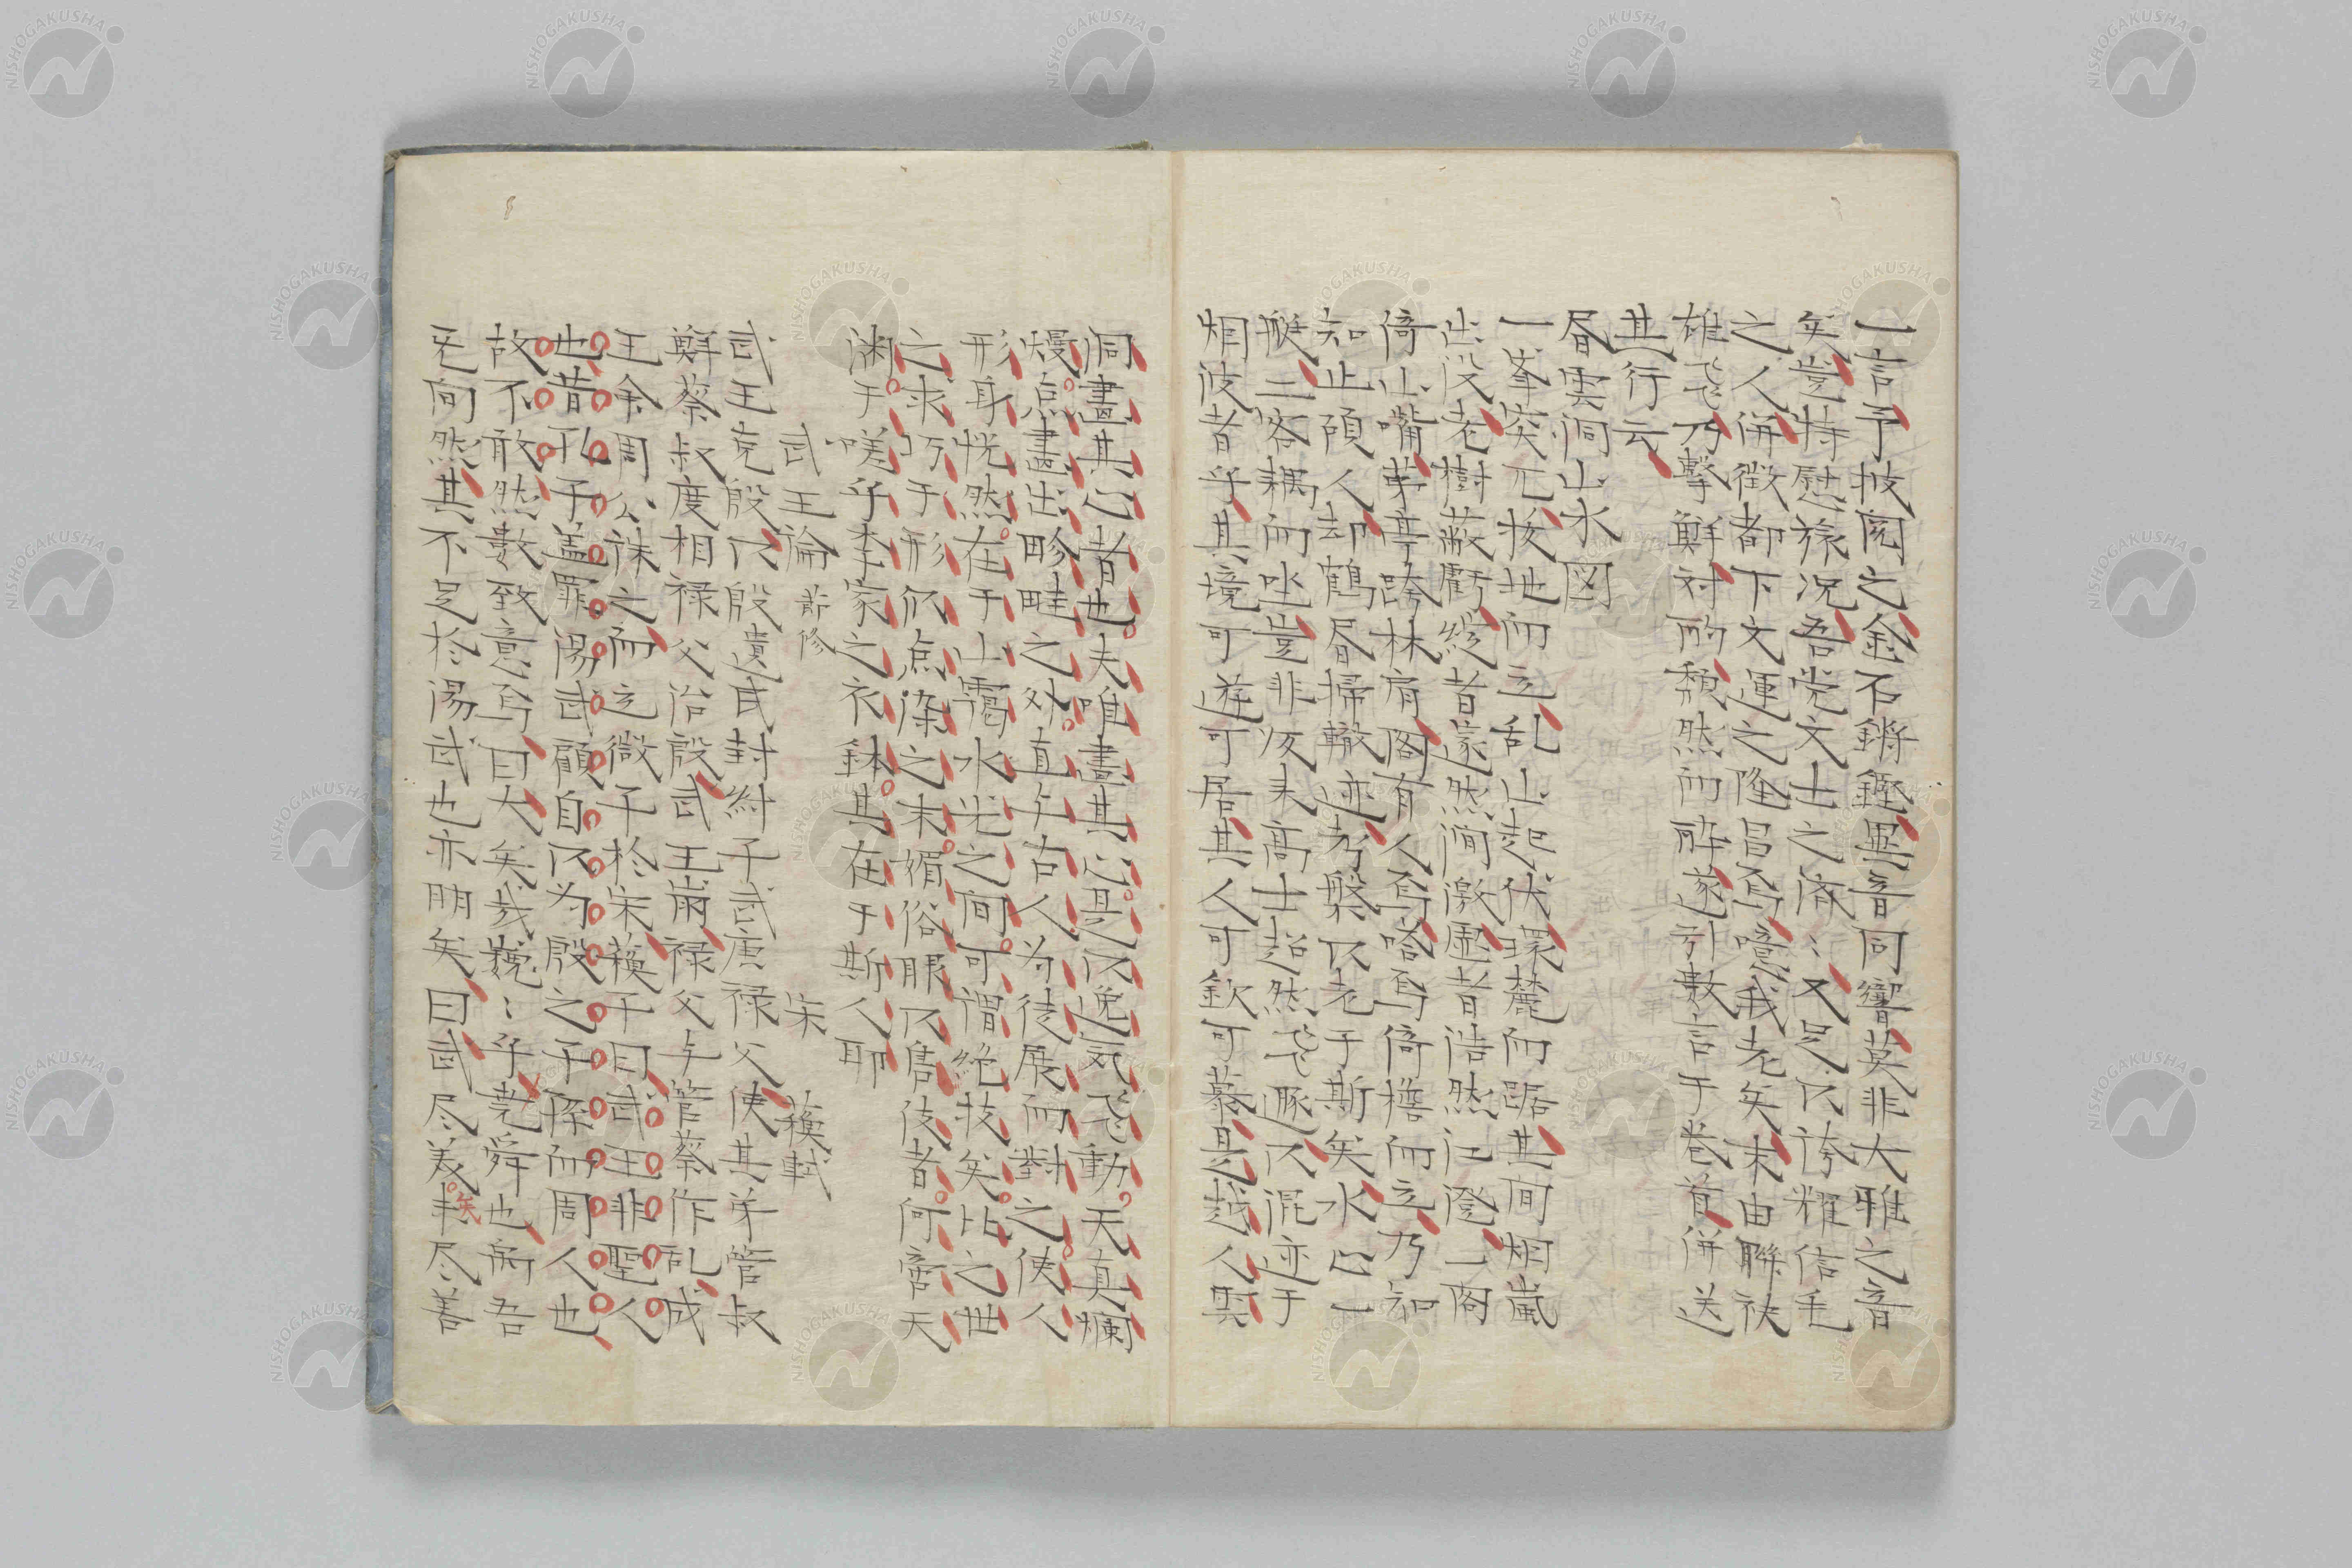 一言予披閲之金石鏘鏗異音同響莫非大雅之音
矣豈特慰旅况吾党文士之済〻又足以誇耀信毛
之人併徴都下文運之隆昌焉噫我老矣末由聯袂
雄飛乃擊鮮対酌頽然而酔遂引数言于巻首併送
其行云
層雲洞山水図
一峯突兀抜地而立乱山起伏環麓而踞其間烟嵐
出没老樹蔽虧縦者蒙然澗激匯者浩然江澄一閣
倚山嘴茅亭跨林肩閣有人焉啥焉倚檐而立乃知
知止碩人却鶴層掃轍迹考槃以老于斯矣水心一
艇二客耦而坐豈非友来高士超然飛遯以混迹于
烟波者乎其境可遊可居其人可欽可慕是越人雲
洞畫其心者也夫唯畫其心是以逸気飛動天真爛
熳点畫出畛畦之外直与古人為徒展而對之使人
形身恍然在于山靄水光之間可謂絶技矣比之世
之求巧于形似点染之末媚俗眼以售伎者何啻天
淵于嗟乎李家之衣鉢其在于斯人耶
武王論 節修 宋 蘓軾
武王克殷以殷遺民封紂子武庚禄父使其弟管叔
鮮蔡叔度相禄父治殷武王崩禄父与管蔡作乱成
王命周公誅之而立微子於宋蘓子曰武王非聖人
也昔孔子盖罪湯武顧自以為殷之子孫而周人也
故不敢然数致意焉曰大矣哉巍〻乎尭舜也禹吾
无間然其不足於湯武也亦明矣曰武尽美矣未尽善